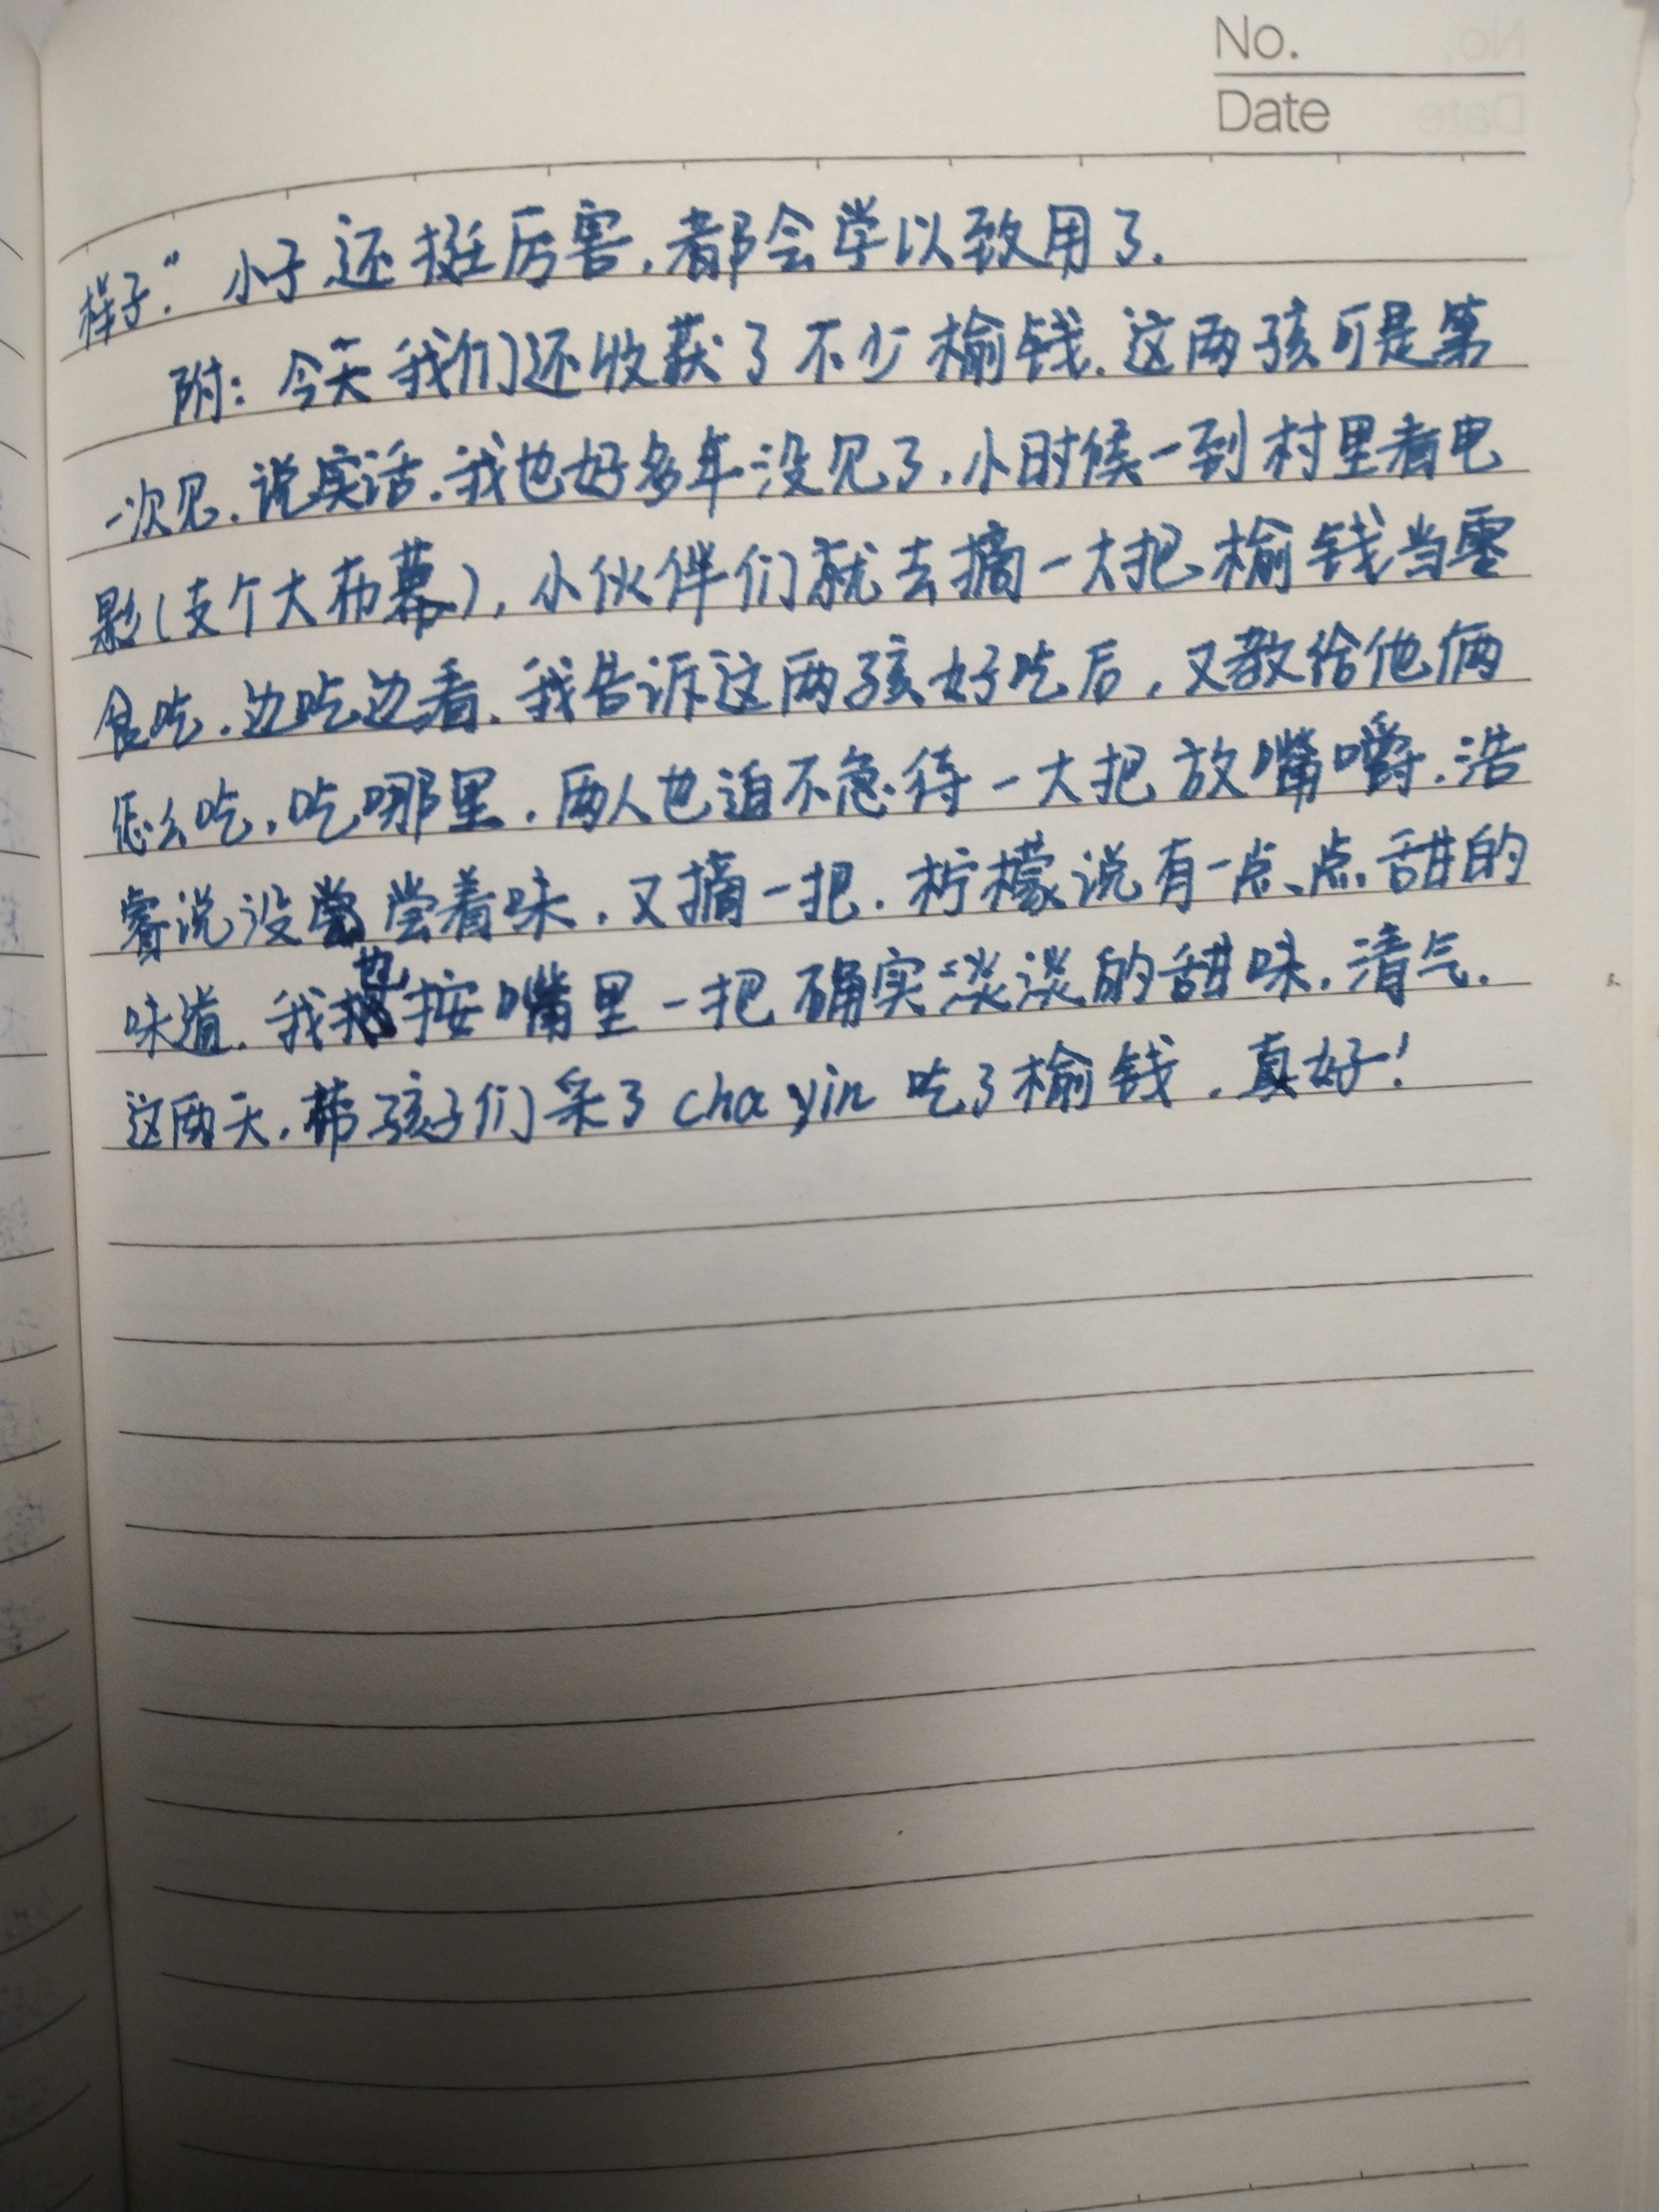 No.
Date
样子.” 小子还挺厉害,都会学以致用了.
附:今天我们还收获了不少榆钱.这两孩可是第
一次见.说实话.我也好多年没见了,小时候一到村里看电
影(支个大布幕),小伙伴们就去摘一大把榆钱当零
食吃.边吃边看.我告诉这两孩好吃后,又教给他俩
怎么吃,吃哪里.两人也迫不急待一大把放嘴嚼.浩
睿说没尝着味,又摘一把.柠檬说有一点、点甜的
味道.我也按嘴里一把确实淡淡的甜味.清气.
这两天.带孩子们采了chayin吃了榆钱.真好!